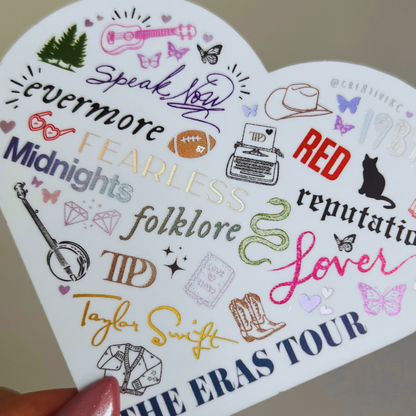 Speak Now
@CRE8IVIKC
evermore
1989
TTPD
RED
FEARLESS
Midnights
reputatio
folklore
TTPD
Lover
Taylor Swift
THE ERAS TOUR